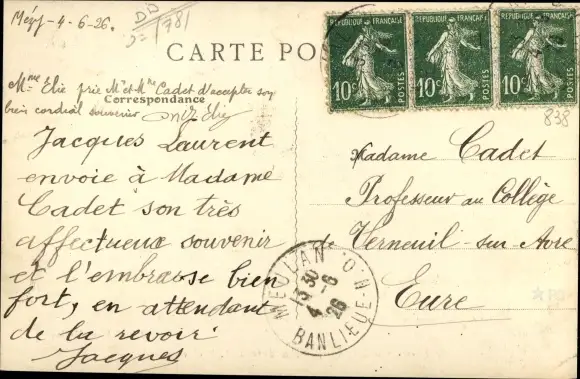 Mézy-4-6-26.
781
CARTE PO
RÉPUBLIQUE FRANÇAISE
10c POSTES
RÉPUBLIQUE FRANÇAISE
10c POSTES
RÉPUBLIQUE FRANÇAISE
10c POSTES
838
Mme Elie prie Mr et Mme Cadet d'accepter son
bien cordial souvenir
Correspondance
Jacques Laurent
envoie à Madame
Cadet son très
affectueux souvenir
et l'embrasse bien
fort, en attendant
de la revoir.
Jacques
Madame Cadet
Professeur au Collège
de Verneuil-sur-Avre
Eure
MEULAN
BANLIEUE
4-6
26